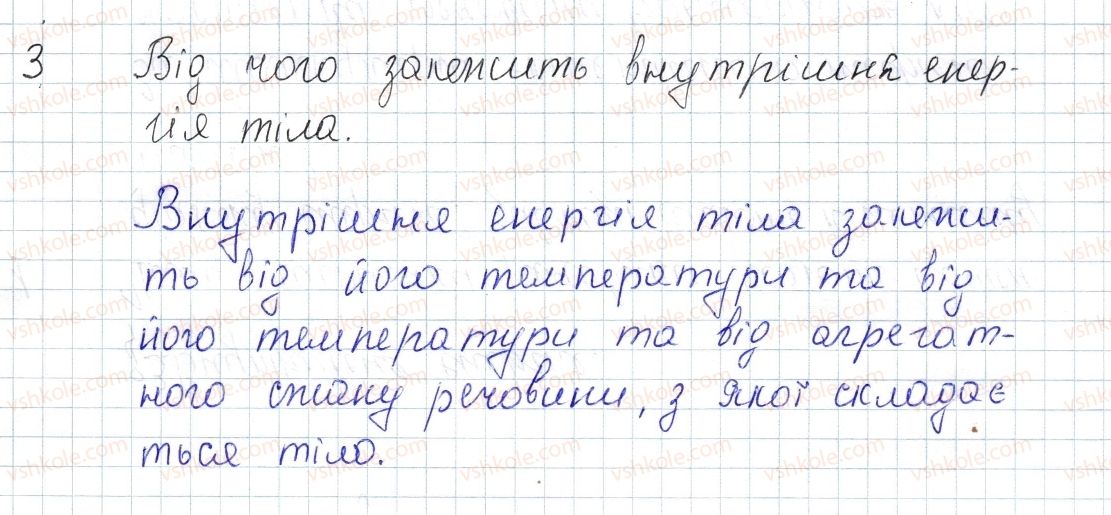 3 Від чого залежить внутрішня енер-
гія тіла.
Внутрішня енергія тіла залежи-
ть від його температури та від
його температури та від агрегат-
ного стану речовини, з якої складає
ться тіло.